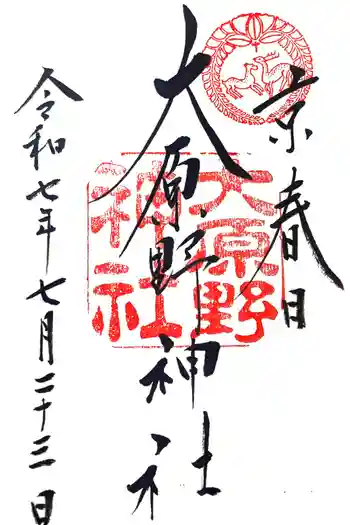 京春日
大原野神社
令和七年七月二十三日
大原野
神社